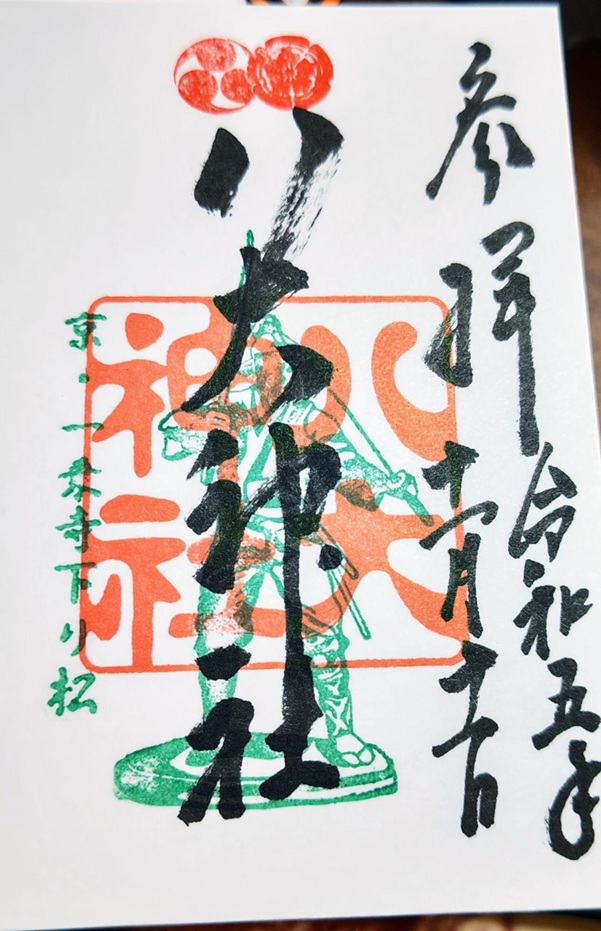 参拝
令和五年
十一月
八大神社
八大
神社
京・一乗寺下り松